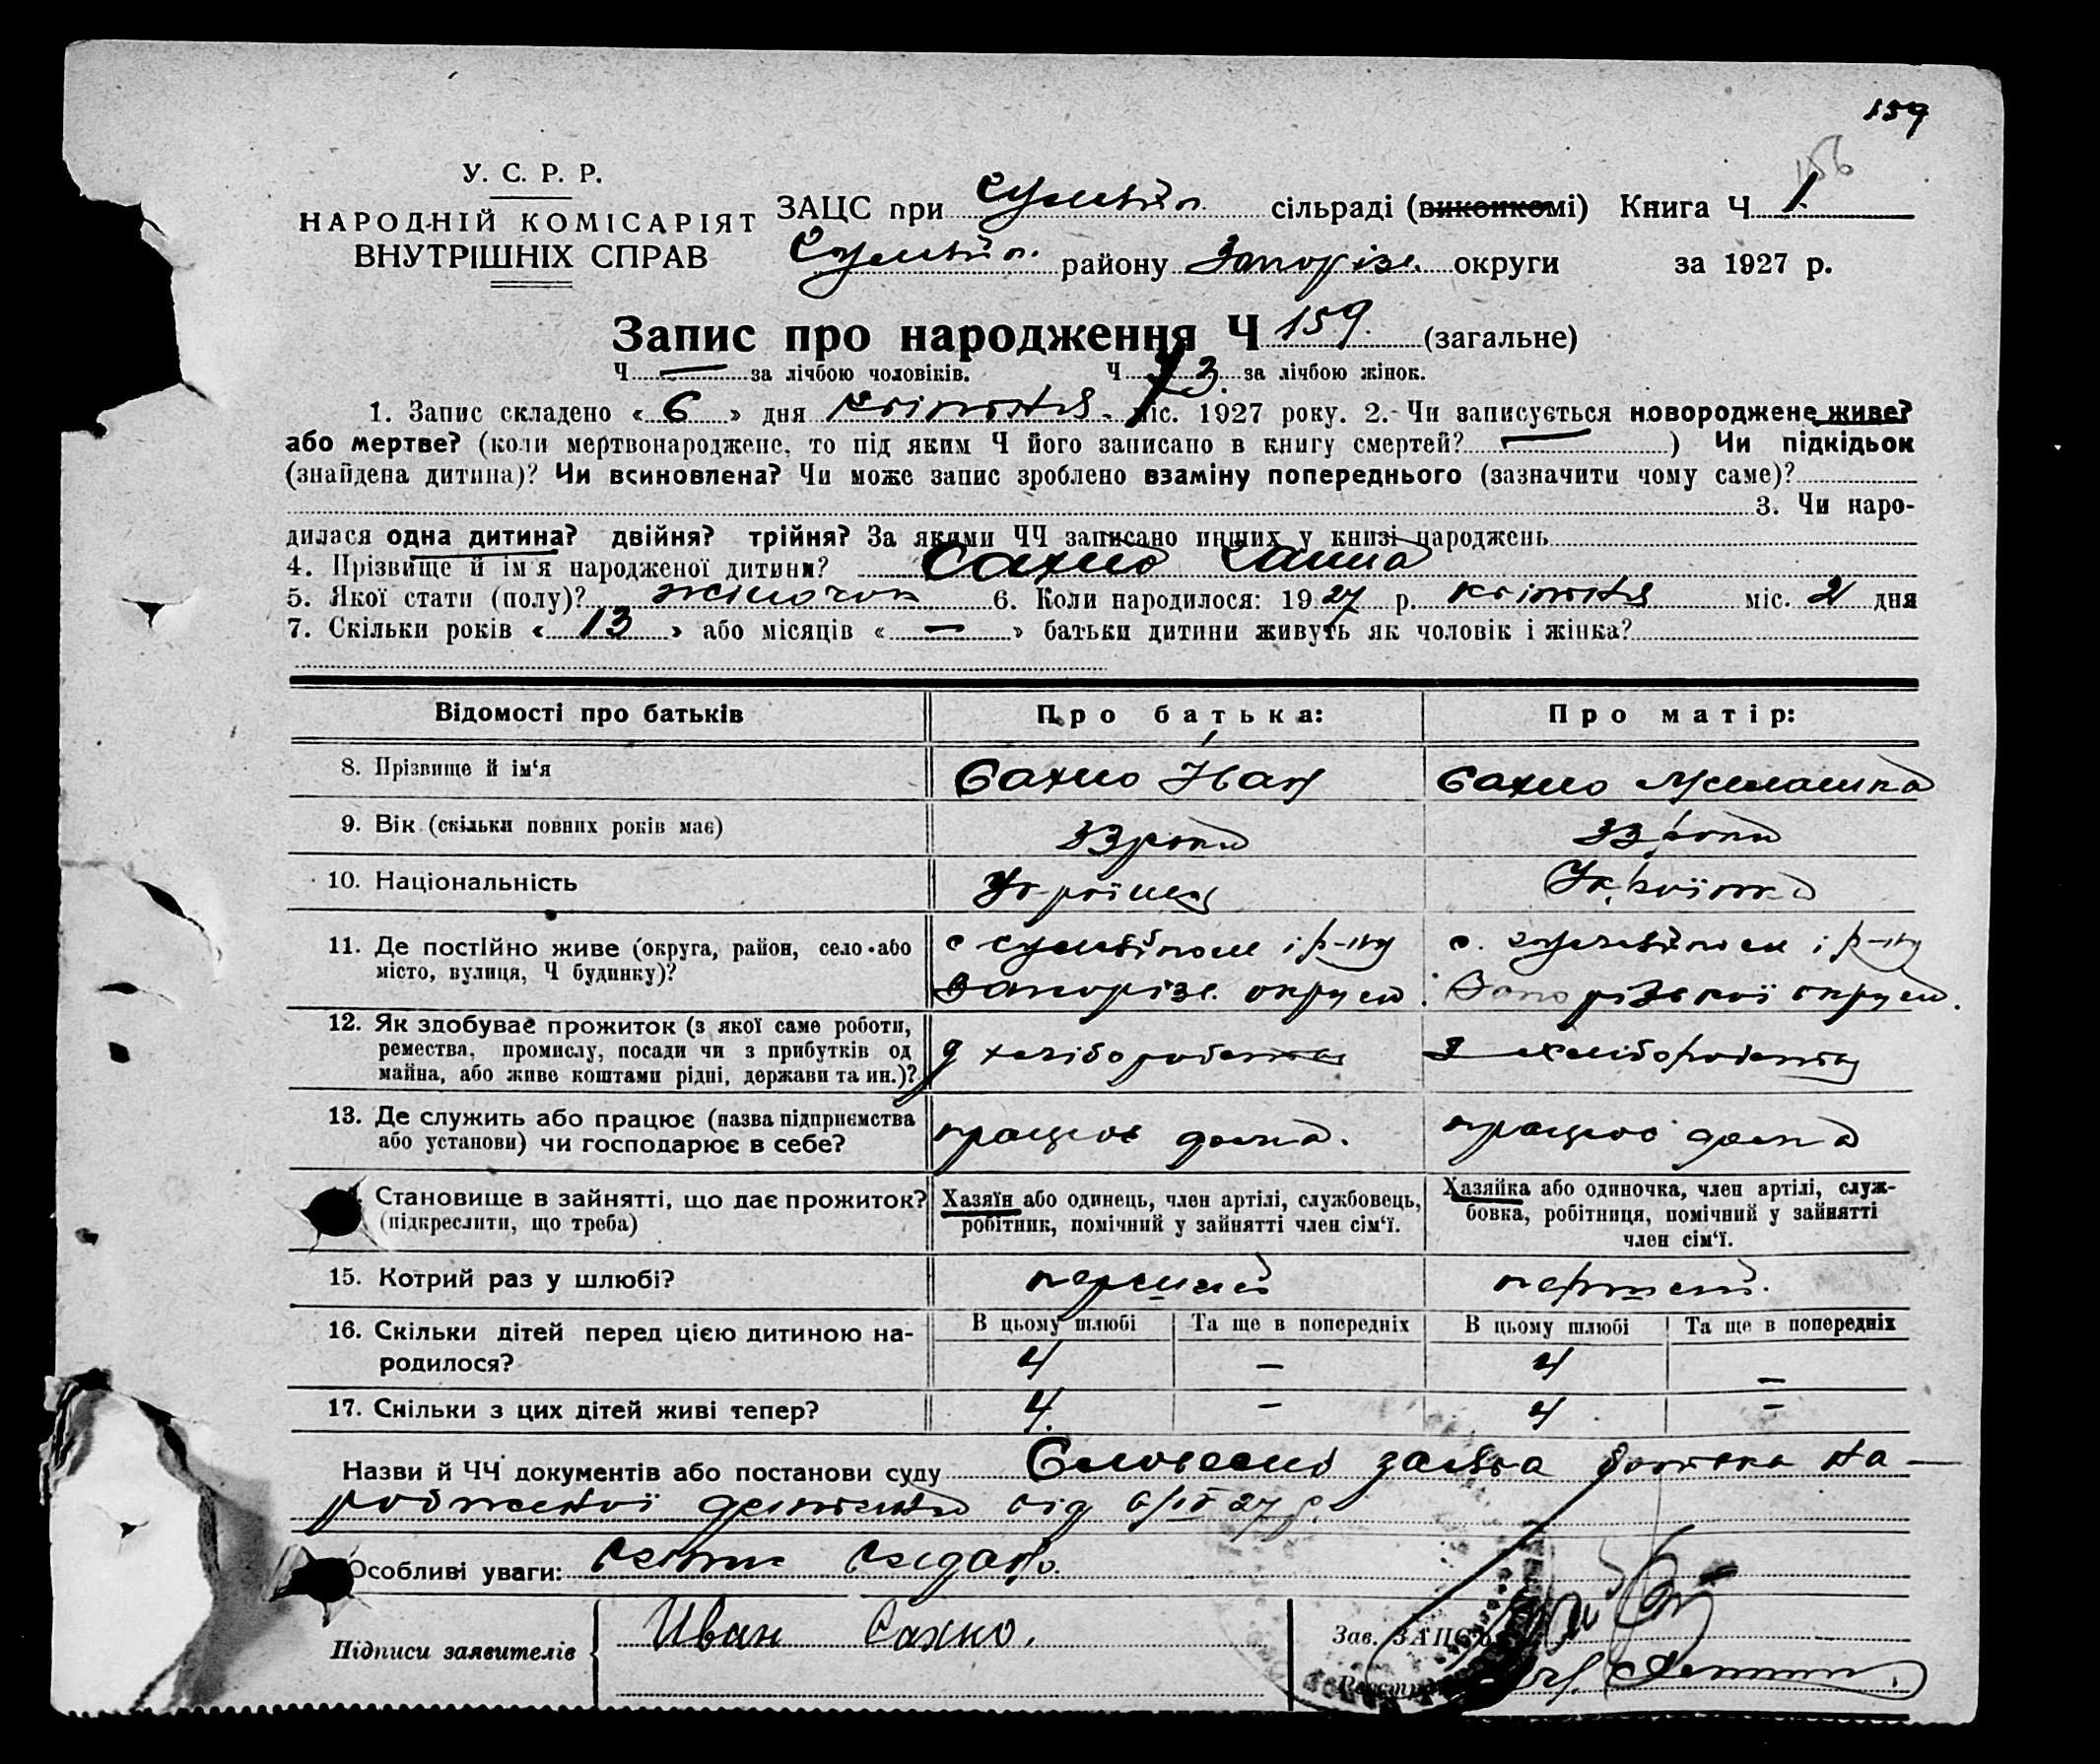 159
156
У. С. Р. Р.
НАРОДНІЙ КОМІСАРІЯТ
ВНУТРІШНІХ СПРАВ
ЗАЦС при Гуляйп. сільраді (виконкомі) Книга Ч 1.
Гуляйп. району Запоріз. округи за 1927 р.
Запис про народження Ч 159. (загальне)
Ч — за лічбою чоловіків. Ч 73. за лічбою жінок.
1. Запис складено « 6 » дня квітня міс. 1927 року. 2. Чи записується новороджене живе?
або мертве? (коли мертвонароджене, то під яким Ч його записано в книгу смертей? — ) Чи підкідьок
(знайдена дитина)? Чи всиновлена? Чи може запис зроблено взаміну попереднього (зазначити чому саме)?
3. Чи наро-
дилася одна дитина? двійня? трійня? За якими ЧЧ записано инших у книзі народжень
4. Прізвище й ім'я народженої дитини? Сахно Ганна
5. Якої стати (полу)? жіночоп 6. Коли народилося: 1927 р. квітня міс. 2 дня
7. Скільки років « 13 » або місяців « — » батьки дитини живуть як чоловік і жінка?
Відомості про батьків Про батька: Про матір:
8. Прізвище й ім'я Сахно Іван Сахно
9. Вік (скільки повних років має) 33 роки 33 роки
10. Національність Українец Українка
11. Де постійно живе (округа, район, село або місто, вулиця, Ч будинку)?
с Гуляйполе і р-ну
Запоріз. округи
с. Гуляйполе і р-ну
Запорізької округи.
12. Як здобуває прожиток (з якої саме роботи,
ремества, промислу, посади чи з прибутків од
майна, або живе коштами рідні, держави та ин.)?
з хліборобства
з хліборобства
13. Де служить або працює (назва підприємства
або установи) чи господарює в себе?
працює дома.
працює дома
Становище в зайнятті, що дає прожиток?
(підкреслити, що треба)
Хазяїн або одинець, член артілі, службовець,
робітник, помічний у зайнятті член сім'ї.
Хазяйка або одиночка, член артілі, служ-
бовка, робітниця, помічний у зайнятті
член сім'ї.
15. Котрий раз у шлюбі? перший перший.
16. Скільки дітей перед цією дитиною на-
родилося?
В цьому шлюбі Та ще в попередніх В цьому шлюбі Та ще в попередніх
4 — 4 —
17. Скільки з цих дітей живі тепер? 4. — 4 —
Назви й ЧЧ документів або постанови суду Словесна заява батька на-
родженої дитини від 6/IV 27 р.
Особливі уваги: Витяг видано.
Підписи заявителів Иван Сахно.
Зав. ЗАЦС'ом